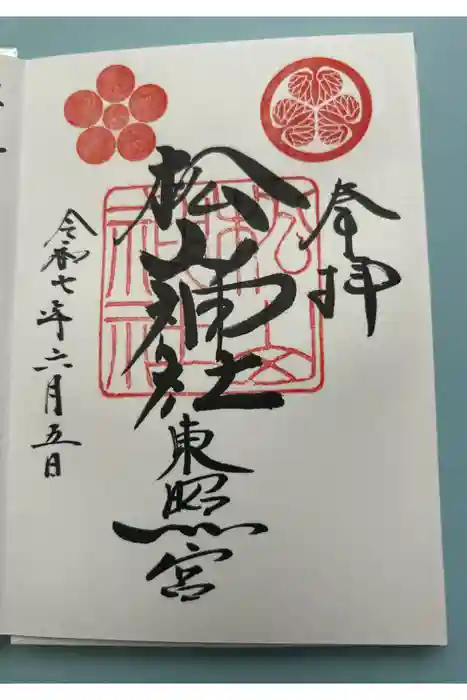 奉拝
松山神社
東照宮
令和七年六月五日